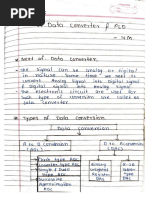 Data Converter & PLD
- 14M
Need of Data Converter.
The signal can be analog or digital
in nature. Some time we need to
convert Analog signal into digital
& digital signal into analog signal.
The electronic circuit are used for
such type of conversion are called as
data Converter.
Types of Data Convertion.
Data Convertion
A to D Convertion
D to A Convertion
Single Slope ADC
Dual Slope ADC
Successive
Approximation
ADC
Binary
Weighted
DAC
R-2R
DAC